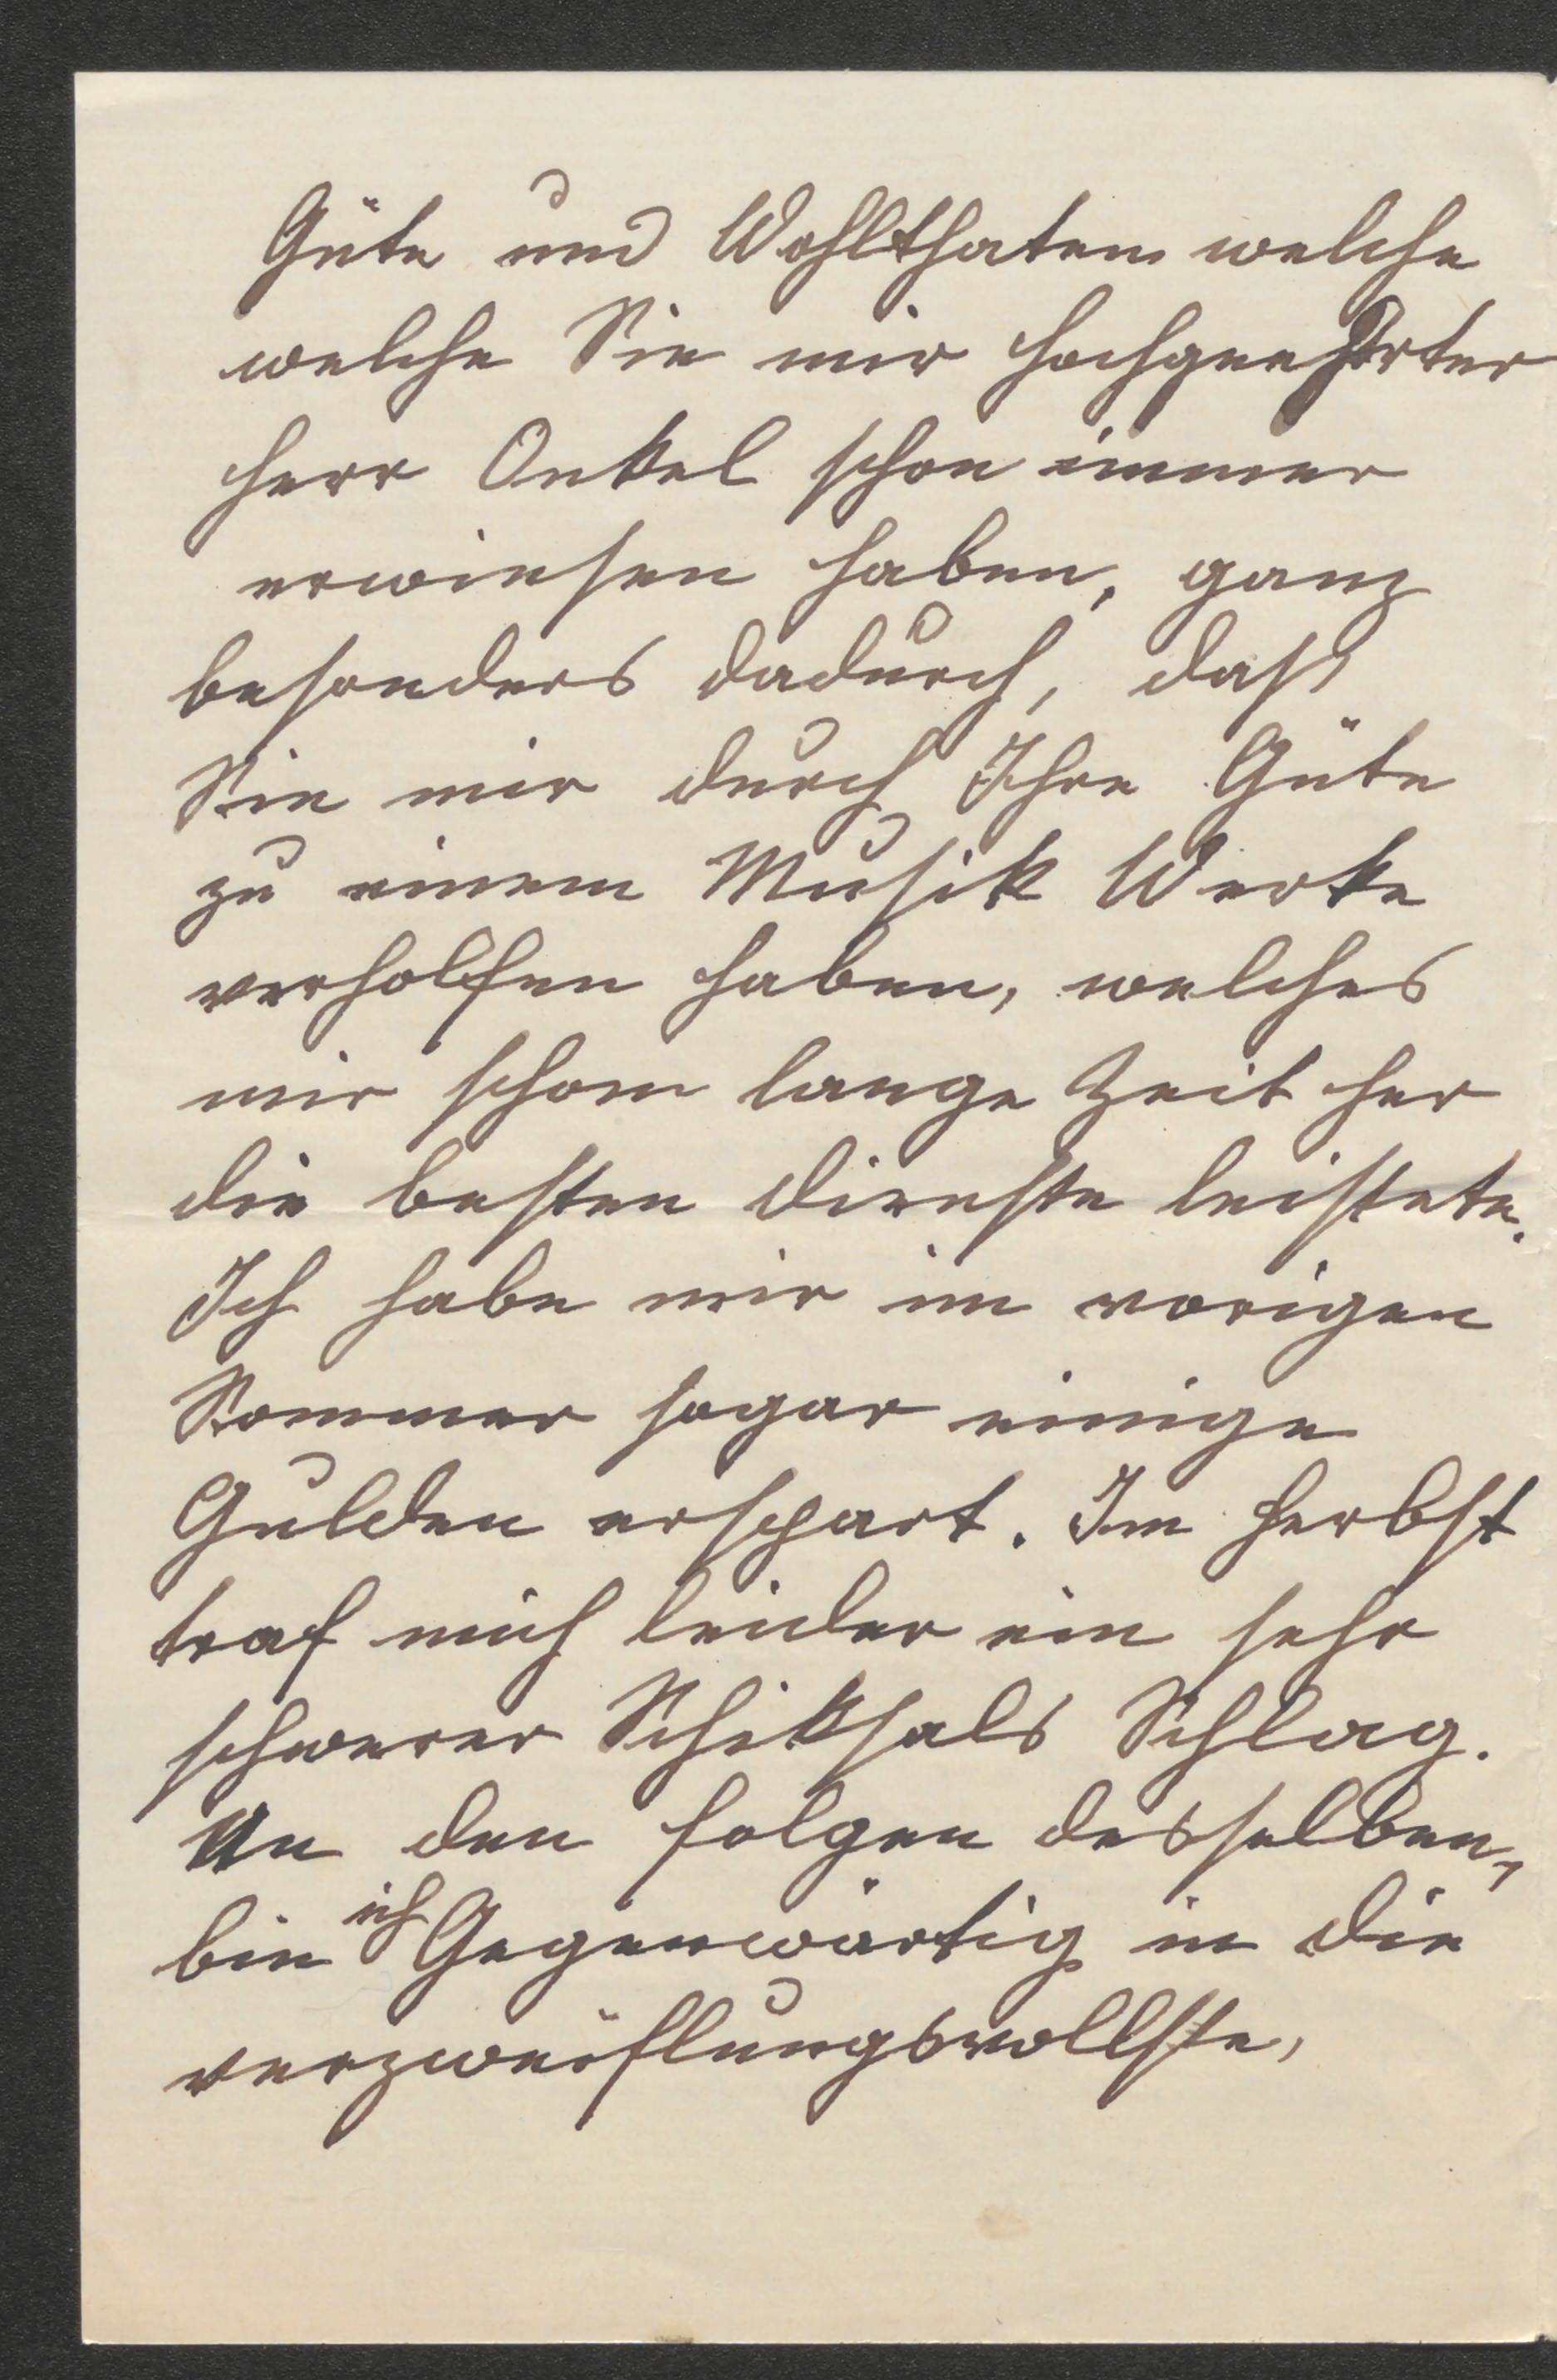 Güte und Wohlthaten welche
welche Sie mir hochgeehrter
Herr Onkel schon immer
erwiesen haben, ganz
besonders dadurch, daß
Sie mir durch Ihre Güte
zu einem Musik Werke
verholfen haben, welches
mir schon lange Zeit her
die besten Dienste leistete.
Ich habe mir im vorigen
Sommer sogar einige
Gulden erspart. Im Herbst
traf mich leider ein sehr
schwerer Schiksals Schlag.
An den Folgen desselben,
bin ich Gegenwärtig in die
verzweiflungsvollste,